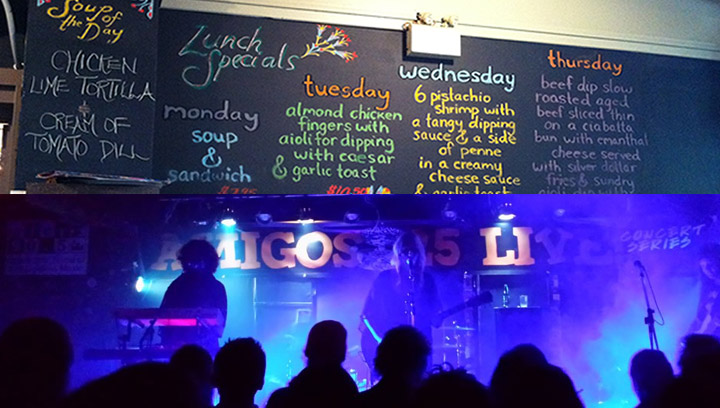 Soup of
the Day
CHICKEN
LIME TORTILLA
CREAM OF
TOMATO DILL
Lunch
Specials
monday
soup
&
sandwich
tuesday
almond chicken
fingers with
aioli for dipping
with caesar
& garlic toast
$10.50
wednesday
6 pistachio
shrimp with
a tangy dipping
sauce & a side
of penne
in a creamy
cheese sauce
& garlic toast
thursday
beef dip slow
roasted aged
beef sliced thin
on a ciabatta
bun with emanthal
cheese served
with silver dollar
fries & sundry
AMIGOS 25 LIVE
CONCERT
SERIES